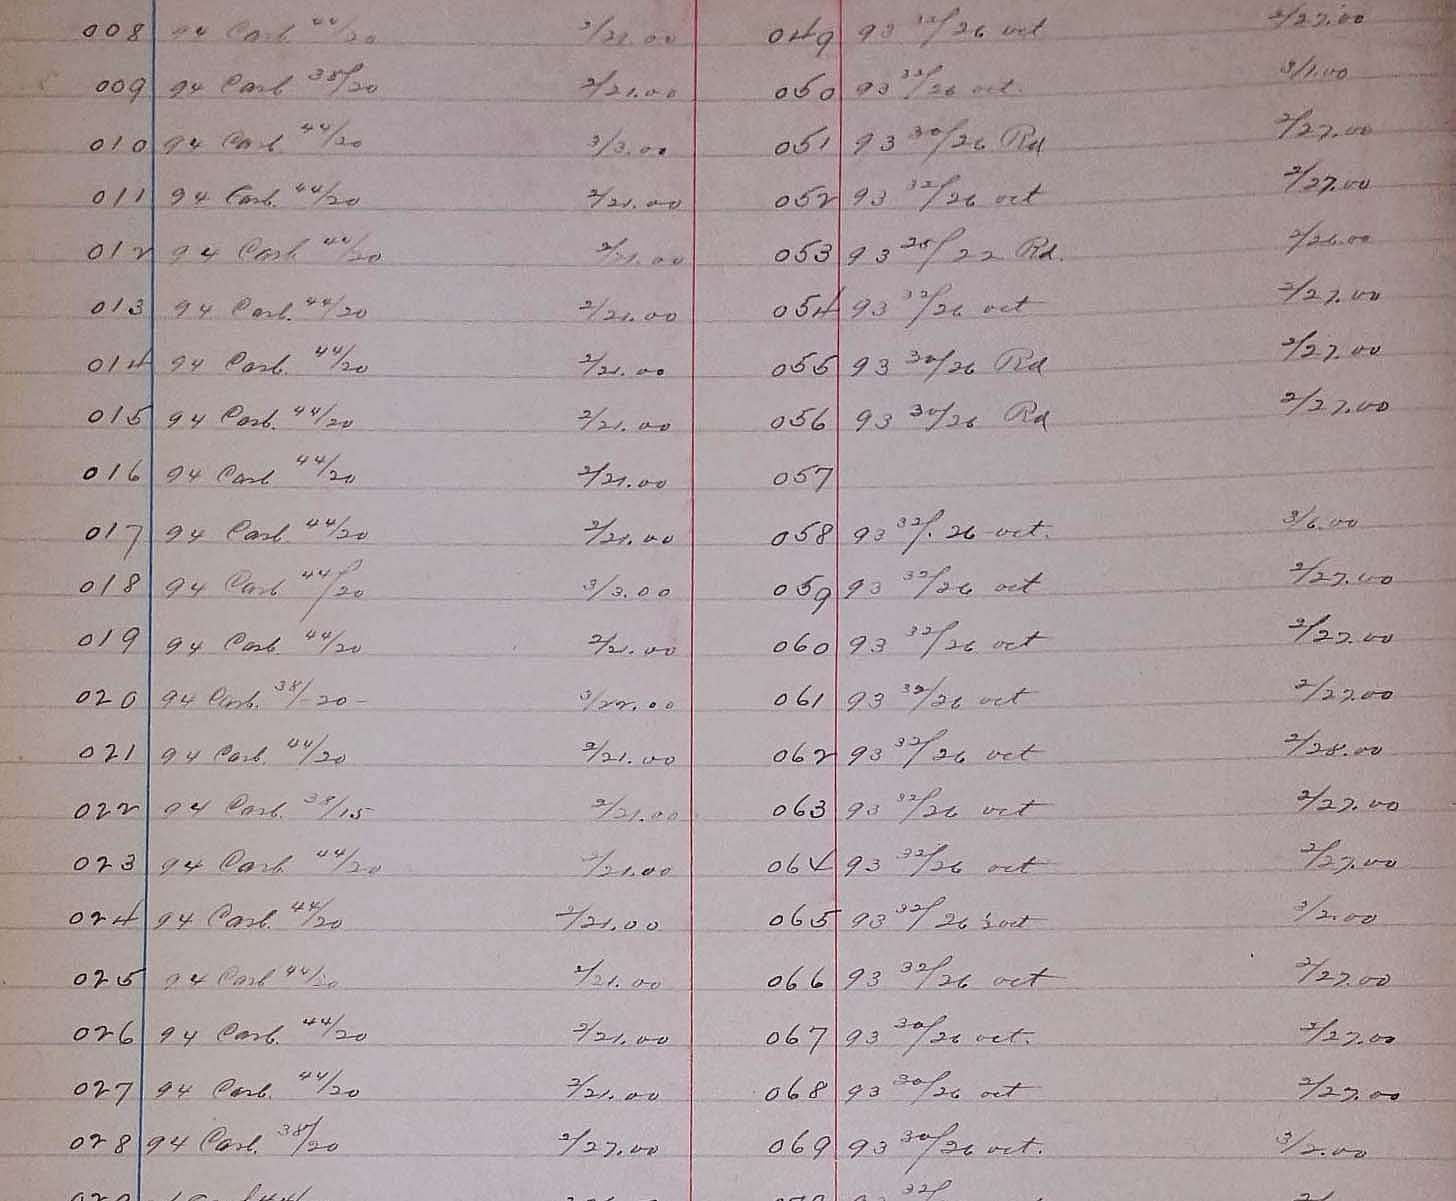 008 94 Carb. 44/20 2/21.00 049 93 32/26 oct 2/27.00
009 94 Carb 38/20 2/21.00 050 93 32/26 oct. 3/1.00
010 94 Carb 44/20 3/3.00 051 93 30/26 Rd 2/27.00
011 94 Carb. 44/20 2/21.00 052 93 32/26 oct 2/27.00
012 94 Carb. 44/20 2/21.00 053 93 28/22 Rd. 2/26.00
013 94 Carb. 44/20 2/21.00 054 93 32/26 oct 2/27.00
014 94 Carb. 44/20 2/21.00 055 93 30/26 Rd 2/27.00
015 94 Carb. 44/20 2/21.00 056 93 30/26 Rd 2/27.00
016 94 Carb 44/20 2/21.00 057
017 94 Carb. 44/20 2/21.00 058 93 32/26 oct. 3/6.00
018 94 Carb 44/20 3/3.00 059 93 32/26 oct 2/27.00
019 94 Carb. 44/20 2/21.00 060 93 32/26 oct 2/27.00
020 94 Carb. 38/-20- 3/22.00 061 93 32/26 oct 2/27.00
021 94 Carb. 44/20 2/21.00 062 93 32/26 oct 2/28.00
022 94 Carb. 38/15 2/21.00 063 93 32/26 oct 2/27.00
023 94 Carb. 44/20 2/21.00 064 93 32/26 oct 2/27.00
024 94 Carb. 44/20 2/21.00 065 93 32/26 oct 3/2.00
025 94 Carb 44/20 2/21.00 066 93 32/26 oct 2/27.00
026 94 Carb. 44/20 2/21.00 067 93 30/26 oct. 2/27.00
027 94 Carb. 44/20 2/21.00 068 93 30/26 oct 2/27.00
028 94 Carb. 38/20 2/27.00 069 93 30/26 oct. 3/2.00